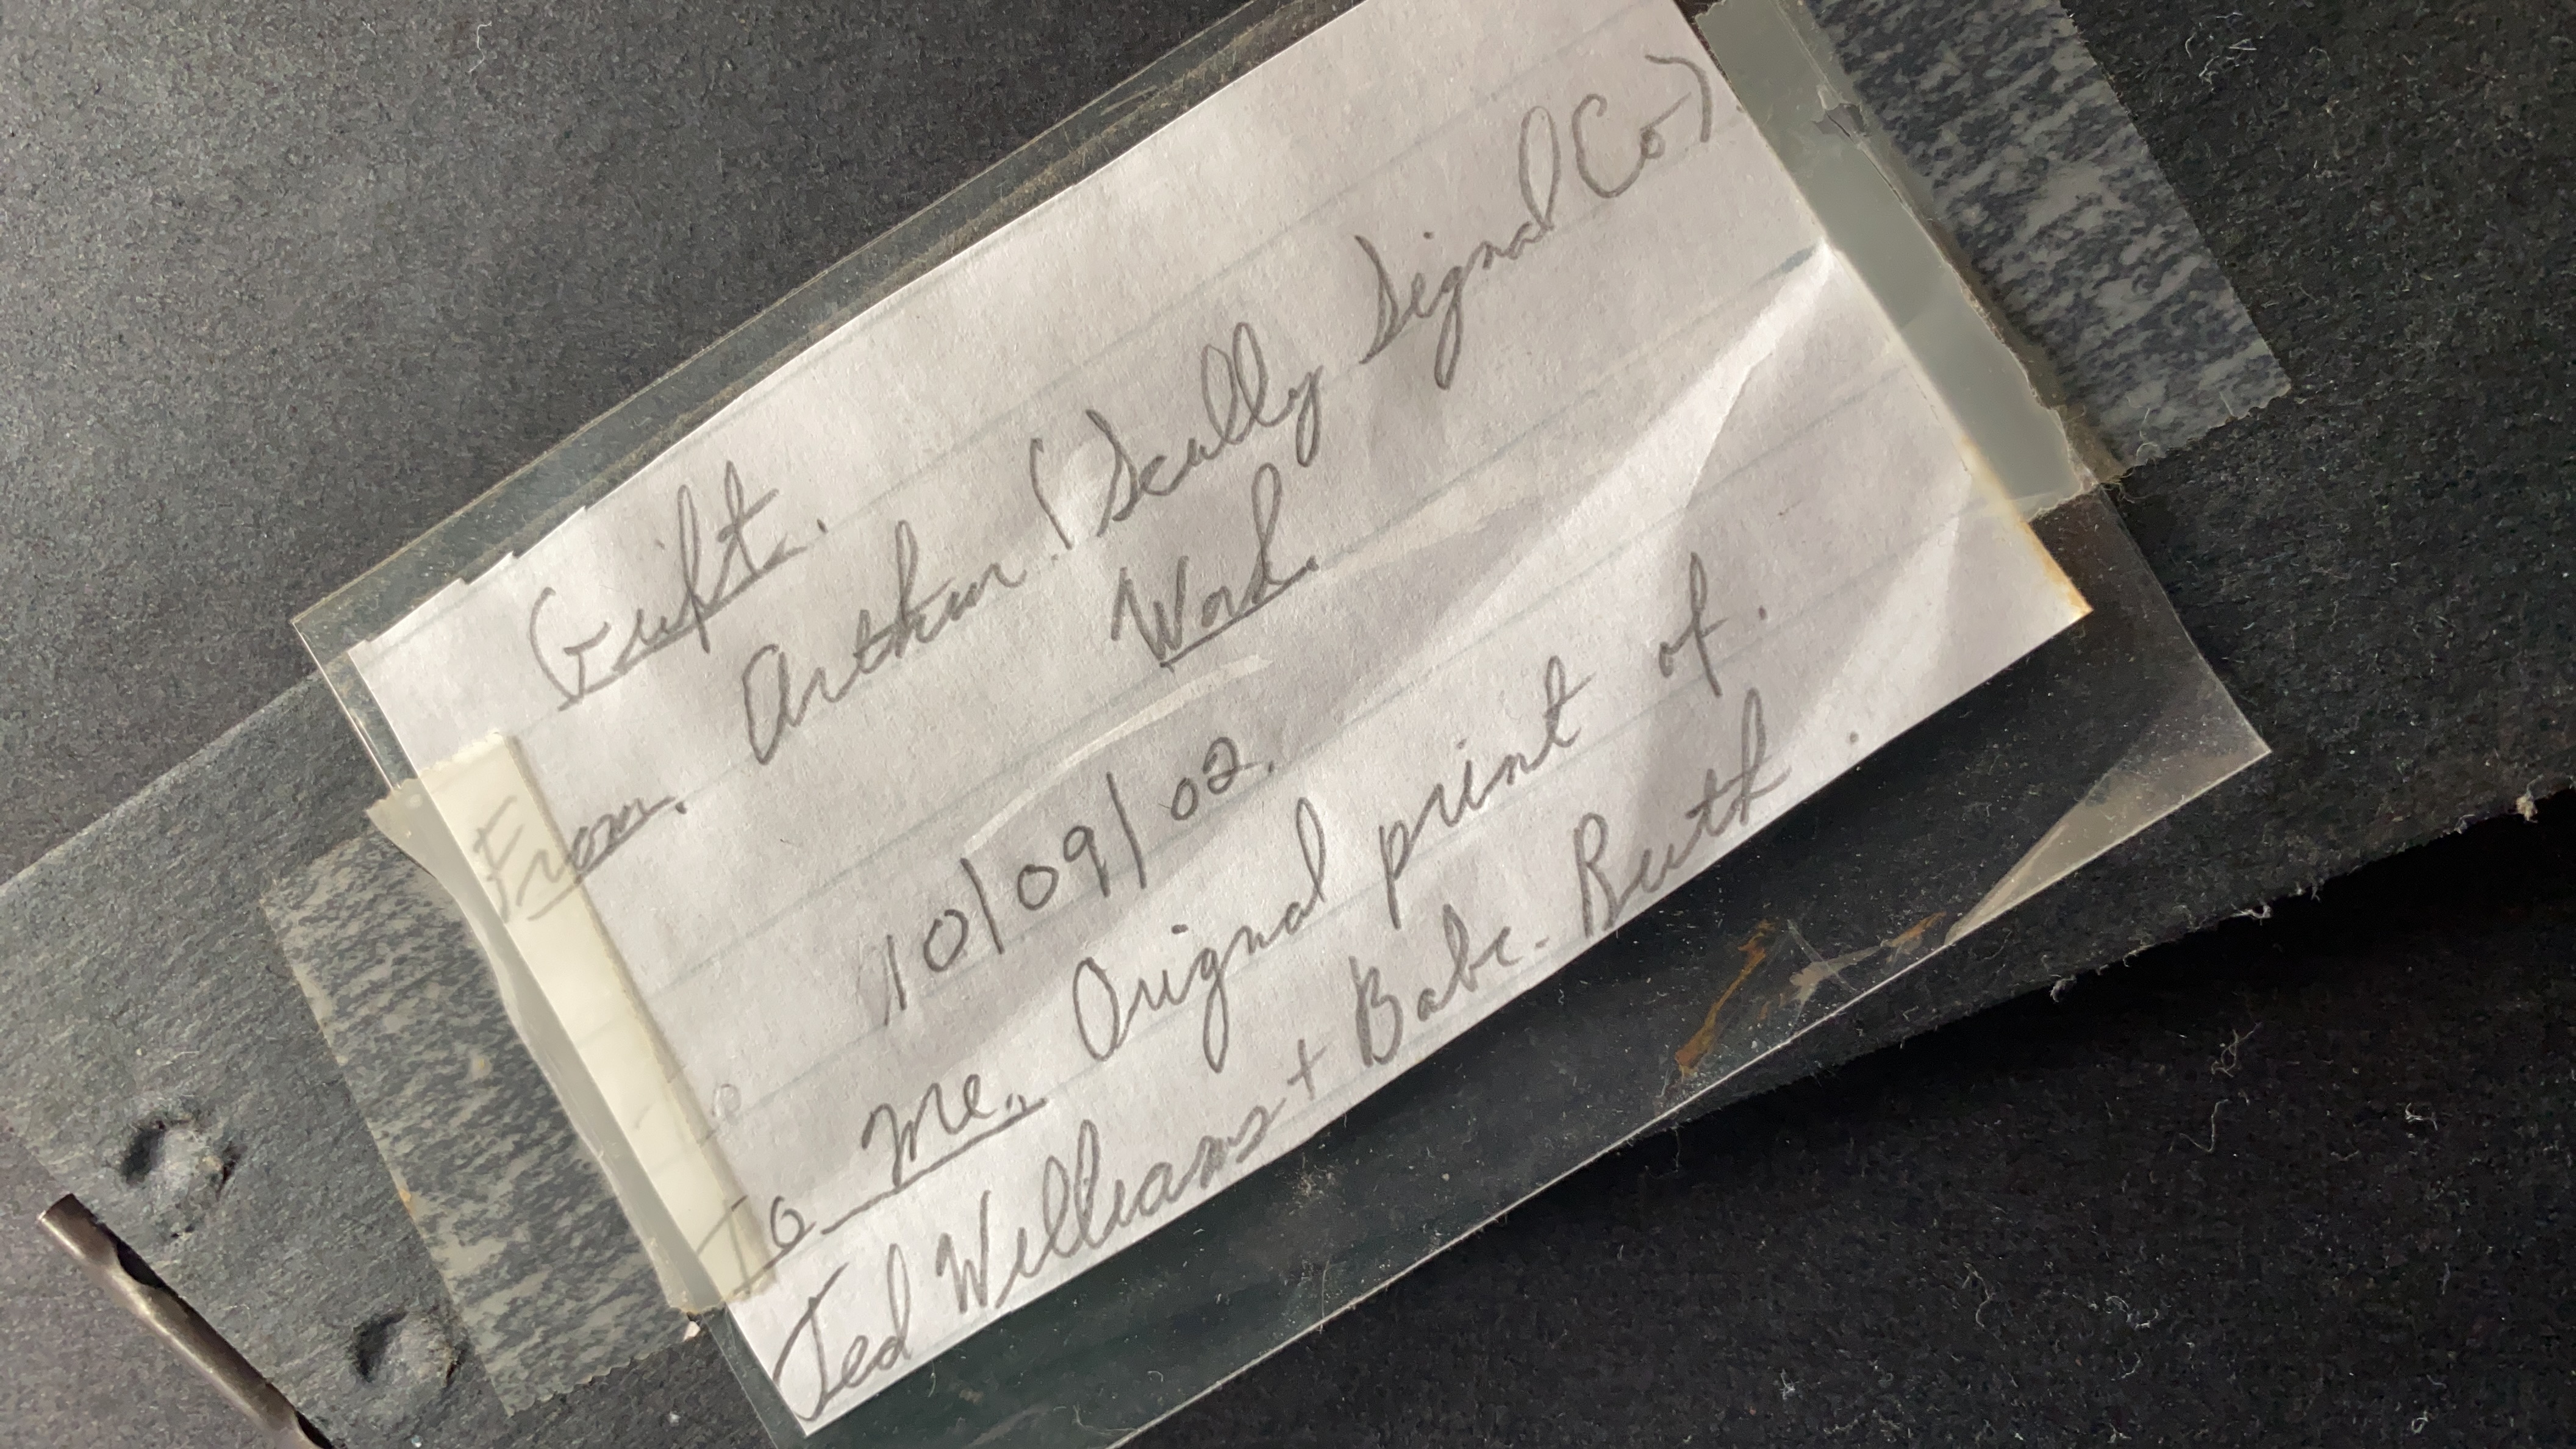 Guift.
From. Arthur. (Scully Signal Co)
Work.
10/09/02.
To Me, Orignal print of.
Ted Williams + Babe. Ruth.